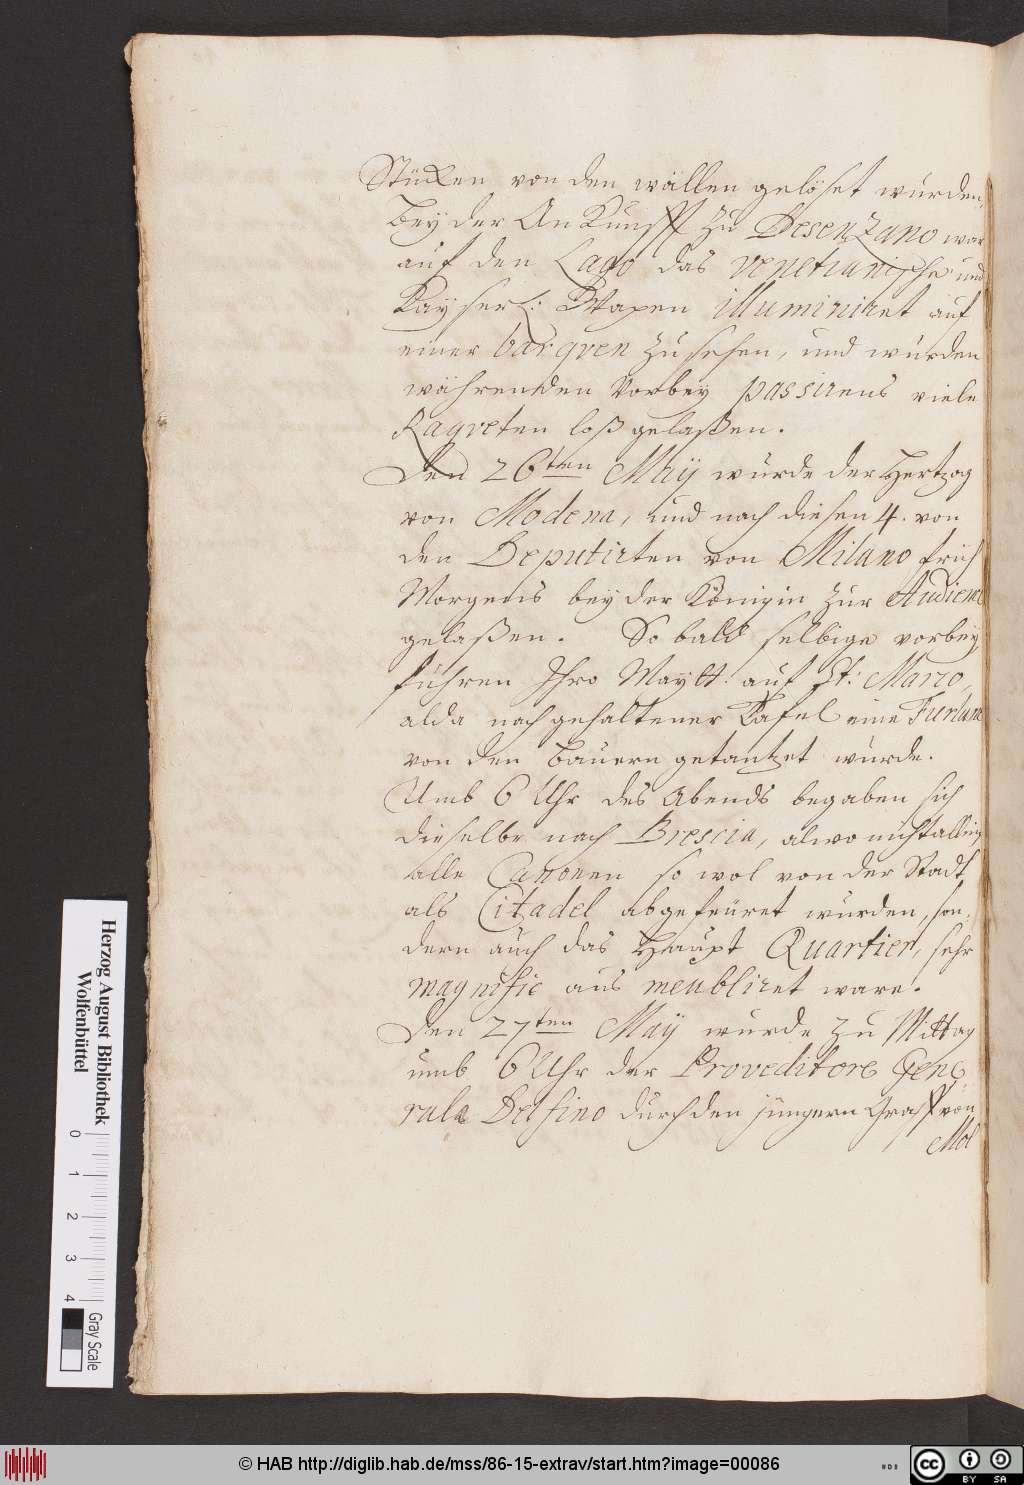 Stücken von den wällen gelöset wurden,
Bey der Ankunfft zu Desenzano war
auf den Lago das Venetianische und
Kayserl: Wapen illuminiret auf
einer barqven zu sehen, und wurden
währenden Vorbey passirens viele
Raqveten loß gelaßen.
Den 26ten May wurde der Hertzog
von Modena, und nach diesen 4. von
den Deputirten von Milano früh
Morgens bey der Königin zur Audienz
gelaßen. So bald selbige vorbey,
führen Ihro Maytt. auf St: Marco,
alda nach gehaltener Tafel eine Furlane
von den Bauern getantzet wurde.
Umb 6 Uhr des Abends begaben sich
dieselbe nach Brescia, alwo nicht allein
alle Canonen so wol von der Stadt
als Citadel abgefeüret wurden, son-
dern auch das Haupt Quartier, sehr
magnific aus meubliret ware.
Den 27ten May wurde zu Mittag
umb 6 Uhr der Proveditore Gene
rale Delfino durch den jüngern Graff von
Mol
Herzog August Bibliothek
Wolfenbüttel
0 1 2 3 4
Gray Scale
© HAB http://diglib.hab.de/mss/86-15-extrav/start.htm?image=00086
cc BY SA